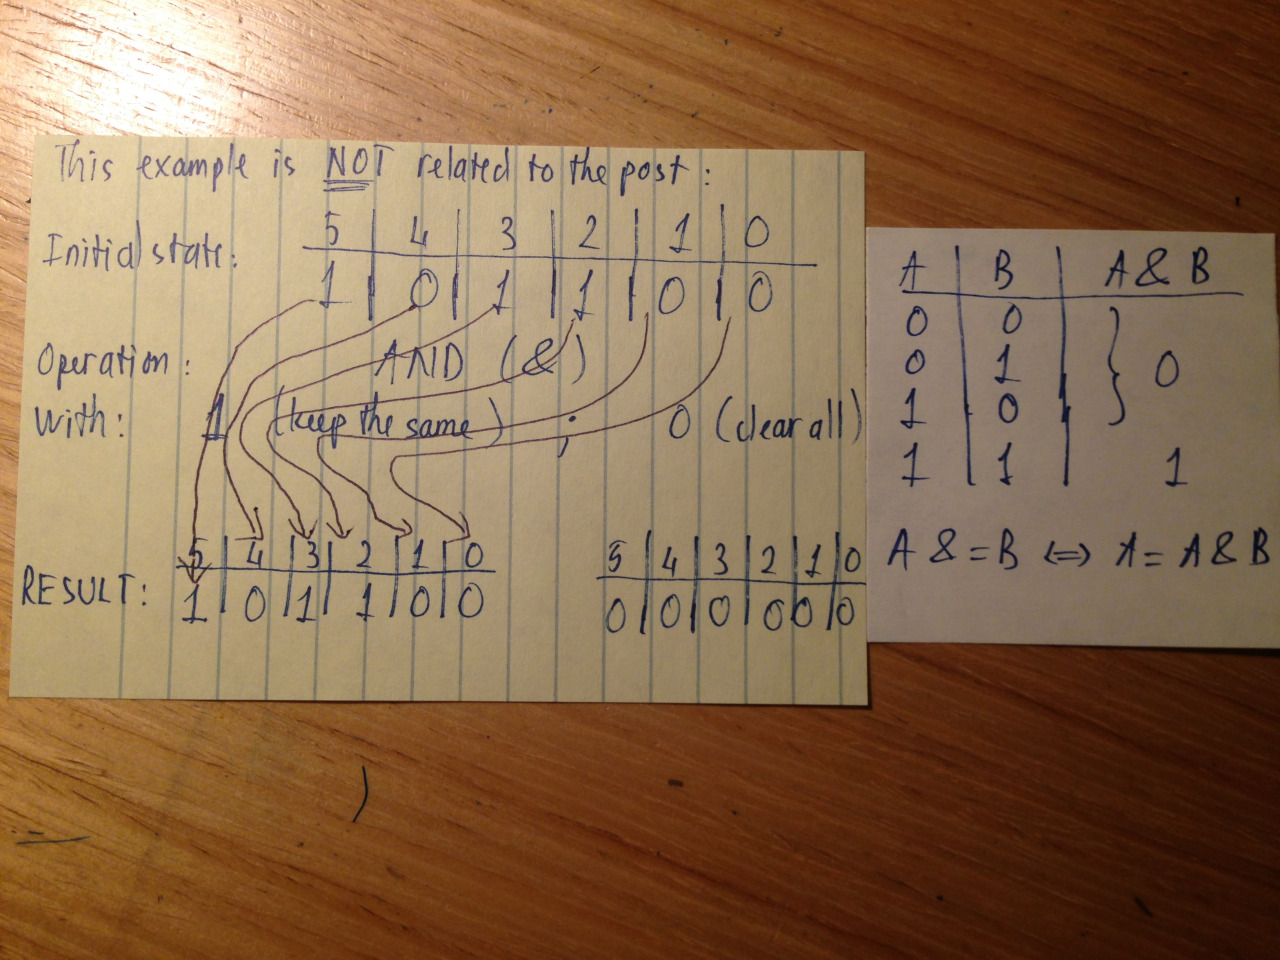 This example is NOT related to the post:
5 | 4 | 3 | 2 | 1 | 0
Initial state:
1 | 0 | 1 | 1 | 0 | 0
Operation: AND (&)
With: 1 (keep the same) ; 0 (clear all)
5 | 4 | 3 | 2 | 1 | 0
RESULT:
1 | 0 | 1 | 1 | 0 | 0
5 | 4 | 3 | 2 | 1 | 0
0 | 0 | 0 | 0 | 0 | 0
A | B | A & B
0 0
0 1 } 0
1 0
1 1 1
A & = B <=> A = A & B